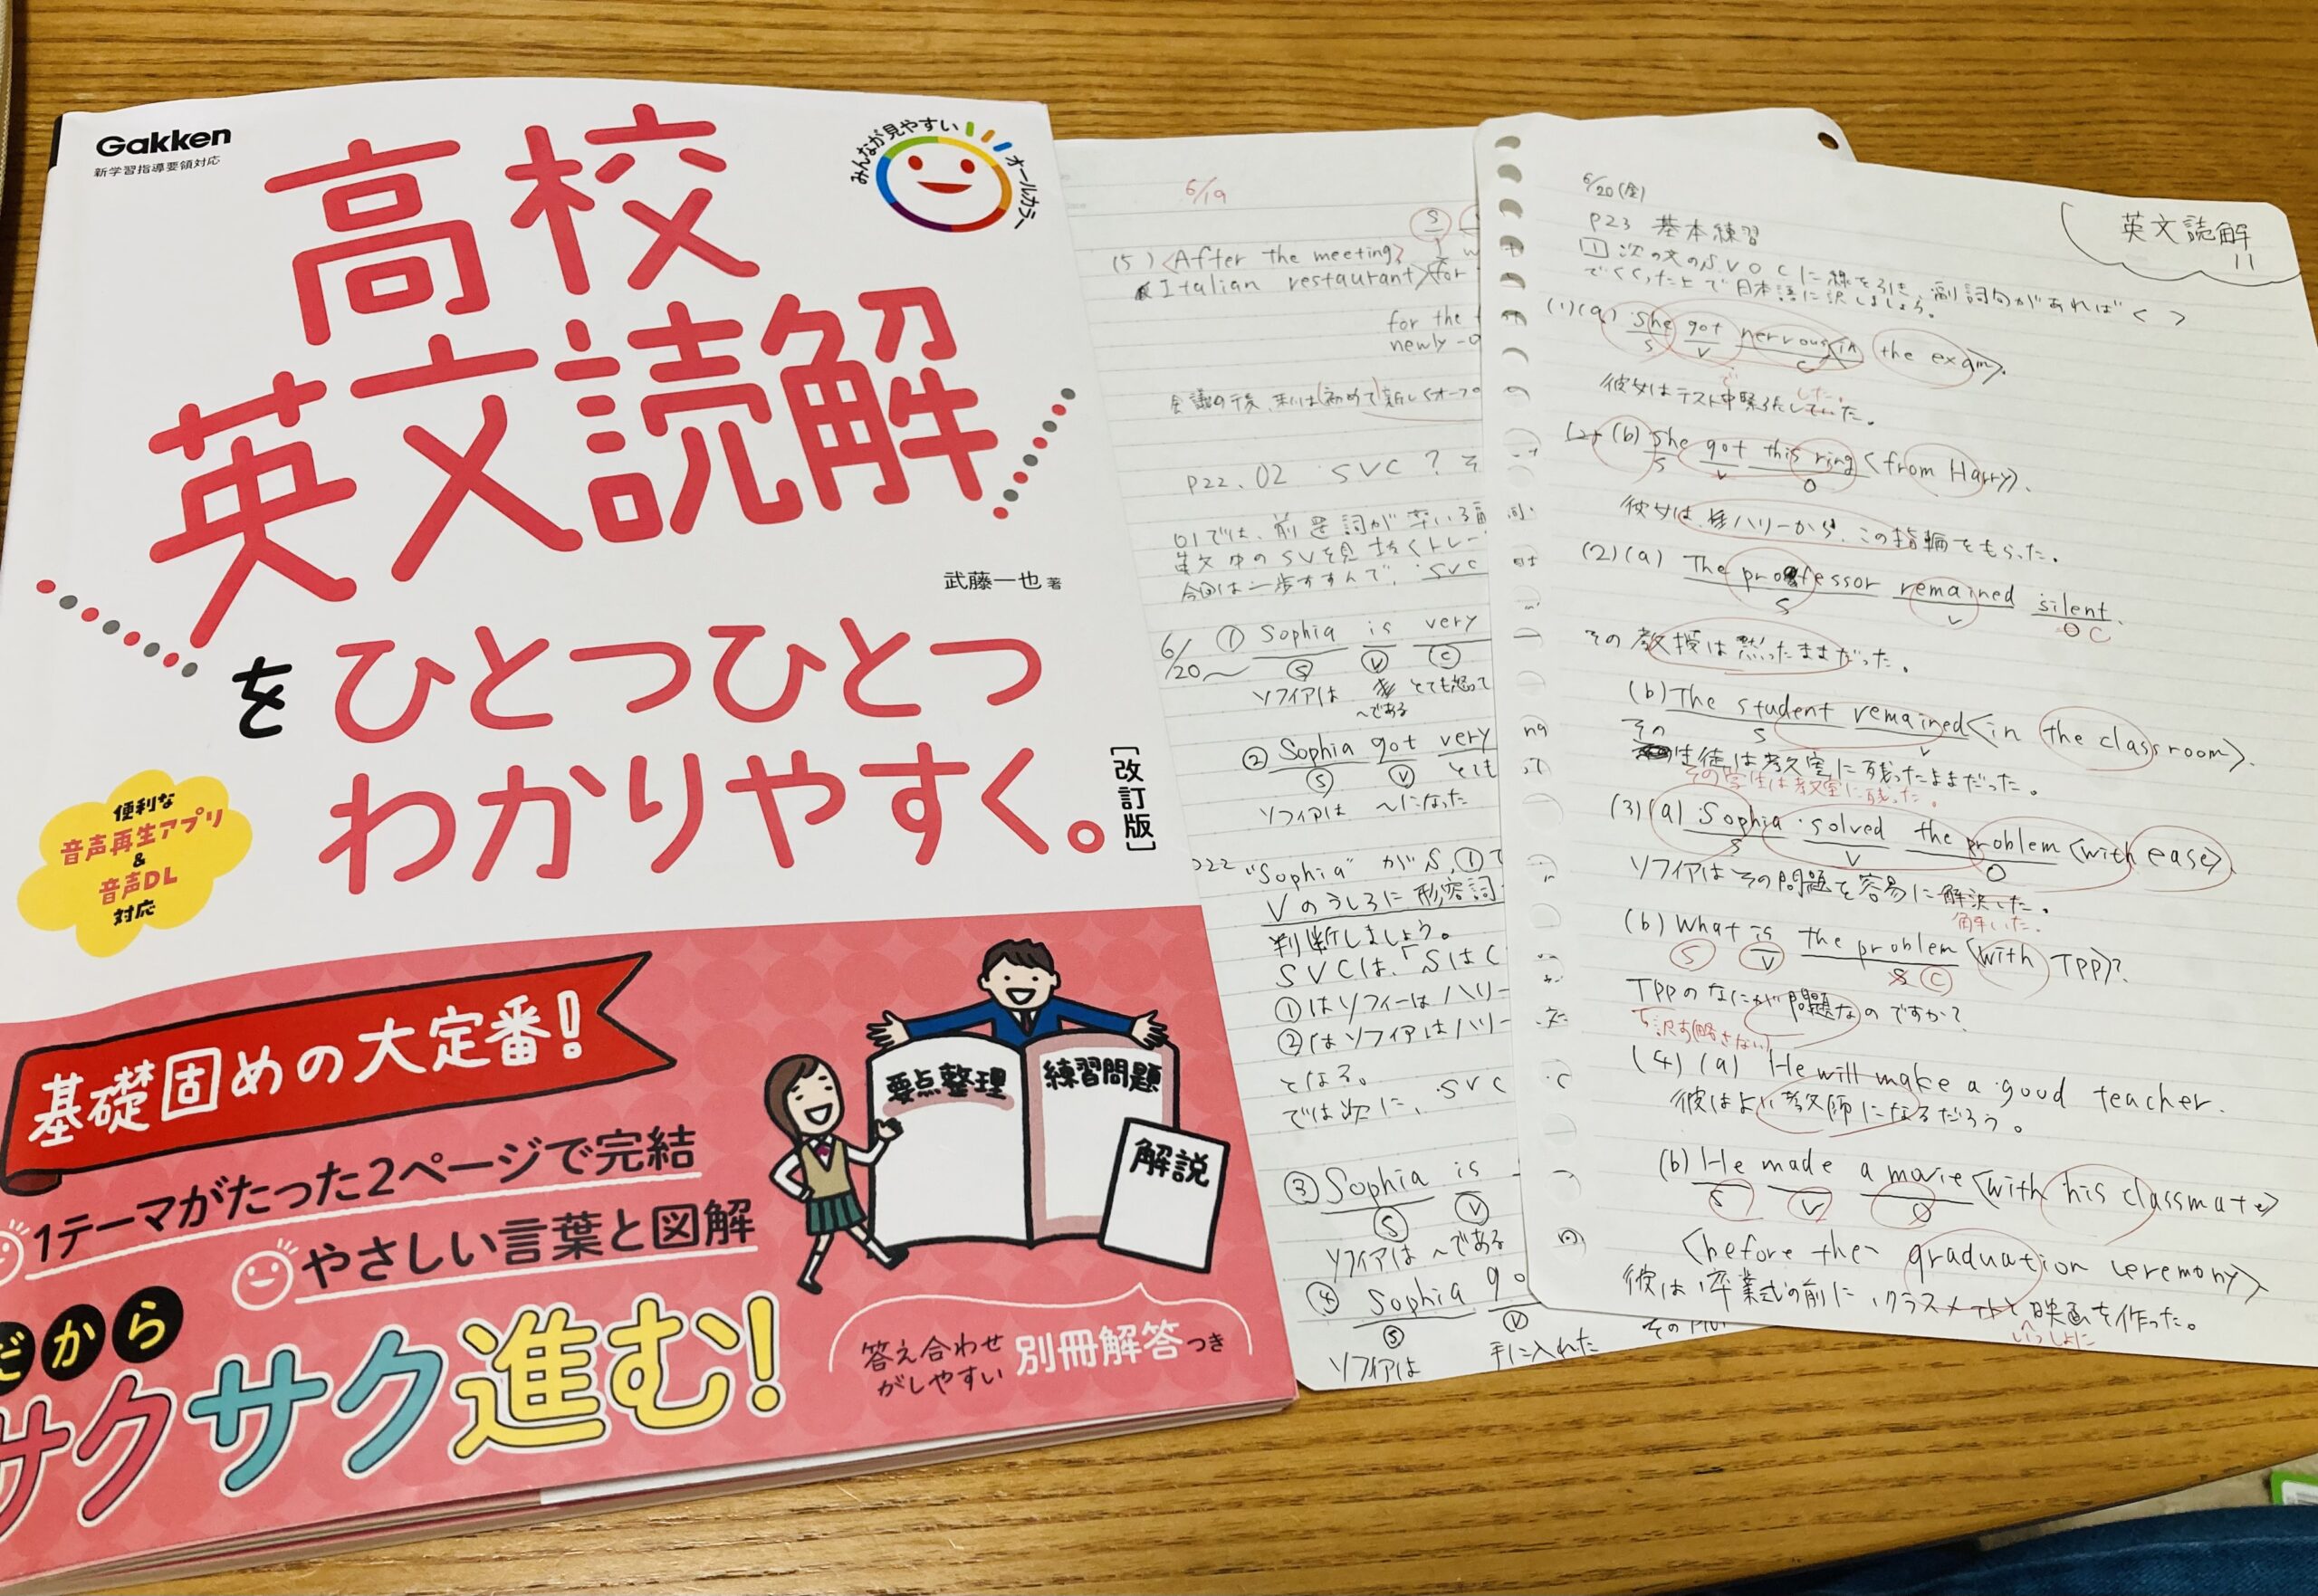 Gakken
新学習指導要領対応
みんなが見やすい オールカラー
高校
英文読解
武藤一也 著
をひとつひとつ
わかりやすく。
[改訂版]
便利な
音声再生アプリ
&
音声DL
対応
基礎固めの大定番!
1テーマがたった2ページで完結
やさしい言葉と図解
だから
サクサク進む!
要点整理
練習問題
解説
答え合わせ
がしやすい
別冊解答つき
6/19
S
(5) <After the meeting>
<Italian restaurant> for
for the
newly-o
会議の後、 初めて 新しくオープ
P22.02 SVC?
01では、前置詞が率いる
英文中のSVを見抜くトレー
今回は一歩すすんで、SVC
6/20〜 ① Sophia is very
S V C
ソフィアは とても怒って
〜である
② Sophia got very
S V とても
ソフィアは 〜になった
P22 "Sophia" がS、①で
Vのうしろに形容詞
判断しましょう。
SVCは、「SはC
①はソフィーはハリー
②はソフィアはハリー
となる。
では次に、SVC
③ Sophia is
S V
ソフィアは 〜である
④ Sophia go
S V
ソフィアは 手に入れた
6/20(金)
英文読解
11
P23 基本練習
1 次の文のS.V O Cに線を引き、副詞句があれば < >
でくくった上で日本語に訳しましょう。
(1)(a) She got nervous <in the exam>.
S V C
で した。
彼女はテスト中緊張していた。
(b) She got this ring <from Harry>.
S V O
彼女は ハリーから、この指輪をもらった。
(2)(a) The professor remained silent.
S V C
その教授は黙ったままだった。
(b) The student remained <in the classroom>.
S V
その
生徒は教室に残ったままだった。
その学生は教室に残った。
(3)(a) Sophia solved the problem <with ease>.
S V O
ソフィアはその問題を容易に解決した。
解いた。
(b) What is the problem (with TPP)?
S V S C
TPPのなにが問題なのですか?
(4)(a) He will make a good teacher.
彼はよい教師になるだろう。
(b) He made a movie <with his classmate>
S V O
<before the graduation ceremony>
彼は、卒業式の前に、クラスメイトと映画を作った。
いっしょに